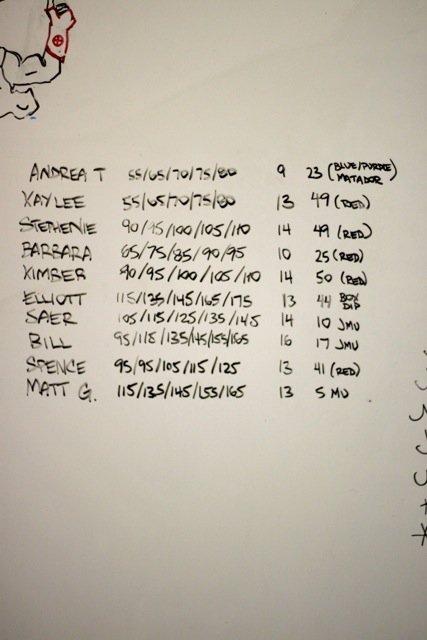 ANDREA T 55/65/70/75/80 9 23 (BLUE/PURPLE MATADOR)
KAYLEE 55/65/70/75/80 13 49 (RED)
STEPHENIE 90/95/100/105/110 14 49 (RED)
BARBARA 65/75/85/90/95 10 25 (RED)
KIMBER 90/95/100/105/110 14 50 (RED)
ELLIOTT 115/135/145/165/175 13 44 BOX DIP
SAER 105/115/125/135/145 14 10 JMU
BILL 95/115/135/145/155/165 16 17 JMU
SPENCE 95/95/105/115/125 13 41 (RED)
MATT G. 115/135/145/155/165 13 5 MU